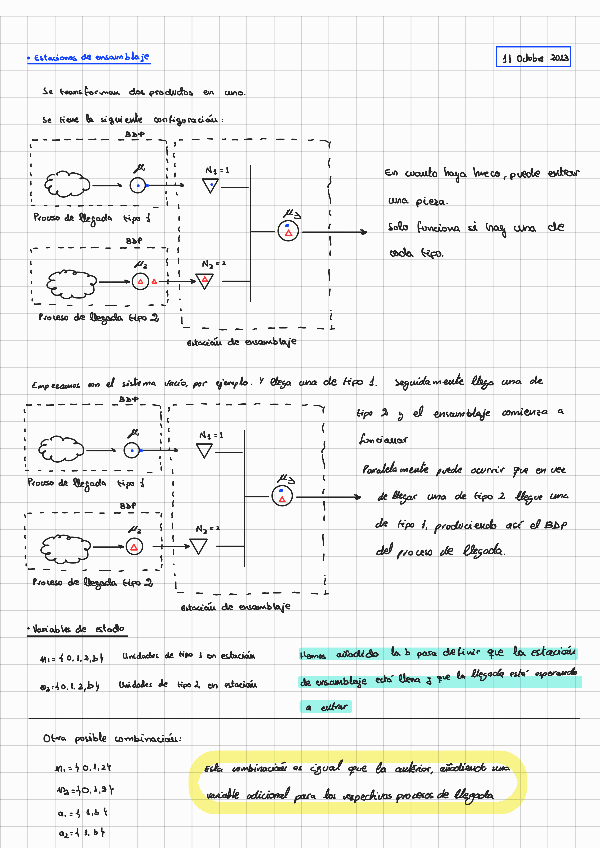 · Estaciones de ensamblaje
11 Octubre 2023
Se transforman dos productos en uno.
Se tiene la siguiente configuración:
BDP
μ
N₁=1
Proceso de llegada tipo 1
BDP
μ₂
N₂=2
μ₃
Proceso de llegada tipo 2
Estación de ensamblaje
En cuanto haya hueco, puede entrar
una pieza.
Solo funciona si hay una de
cada tipo.
Empezamos con el sistema vacío, por ejemplo. Y llega una de tipo 1. Seguidamente llega una de
tipo 2 y el ensamblaje comienza a
funcionar
Paralelamente puede ocurrir que en vez
de llegar una de tipo 2 llegue una
de tipo 1, produciendo así el BDP
del proceso de llegada.
BDP
μ
N₁=1
Proceso de llegada tipo 1
BDP
μ₂
N₂=2
μ₃
Proceso de llegada tipo 2
Estación de ensamblaje
· Variables de estado
n₁={0,1,2,b} Unidades de tipo 1 en estación
n₂={0,1,2,b} Unidades de tipo 2 en estación
Hemos añadido la b para definir que la estación
de ensamblaje está llena y que la llegada está esperando
a entrar
Otra posible combinación:
n₁={0,1,2}
n₂={0,1,2}
a₁={1,b}
a₂={1,b}
Esta combinación es igual que la anterior, añadiendo una
variable adicional para los respectivos procesos de llegada